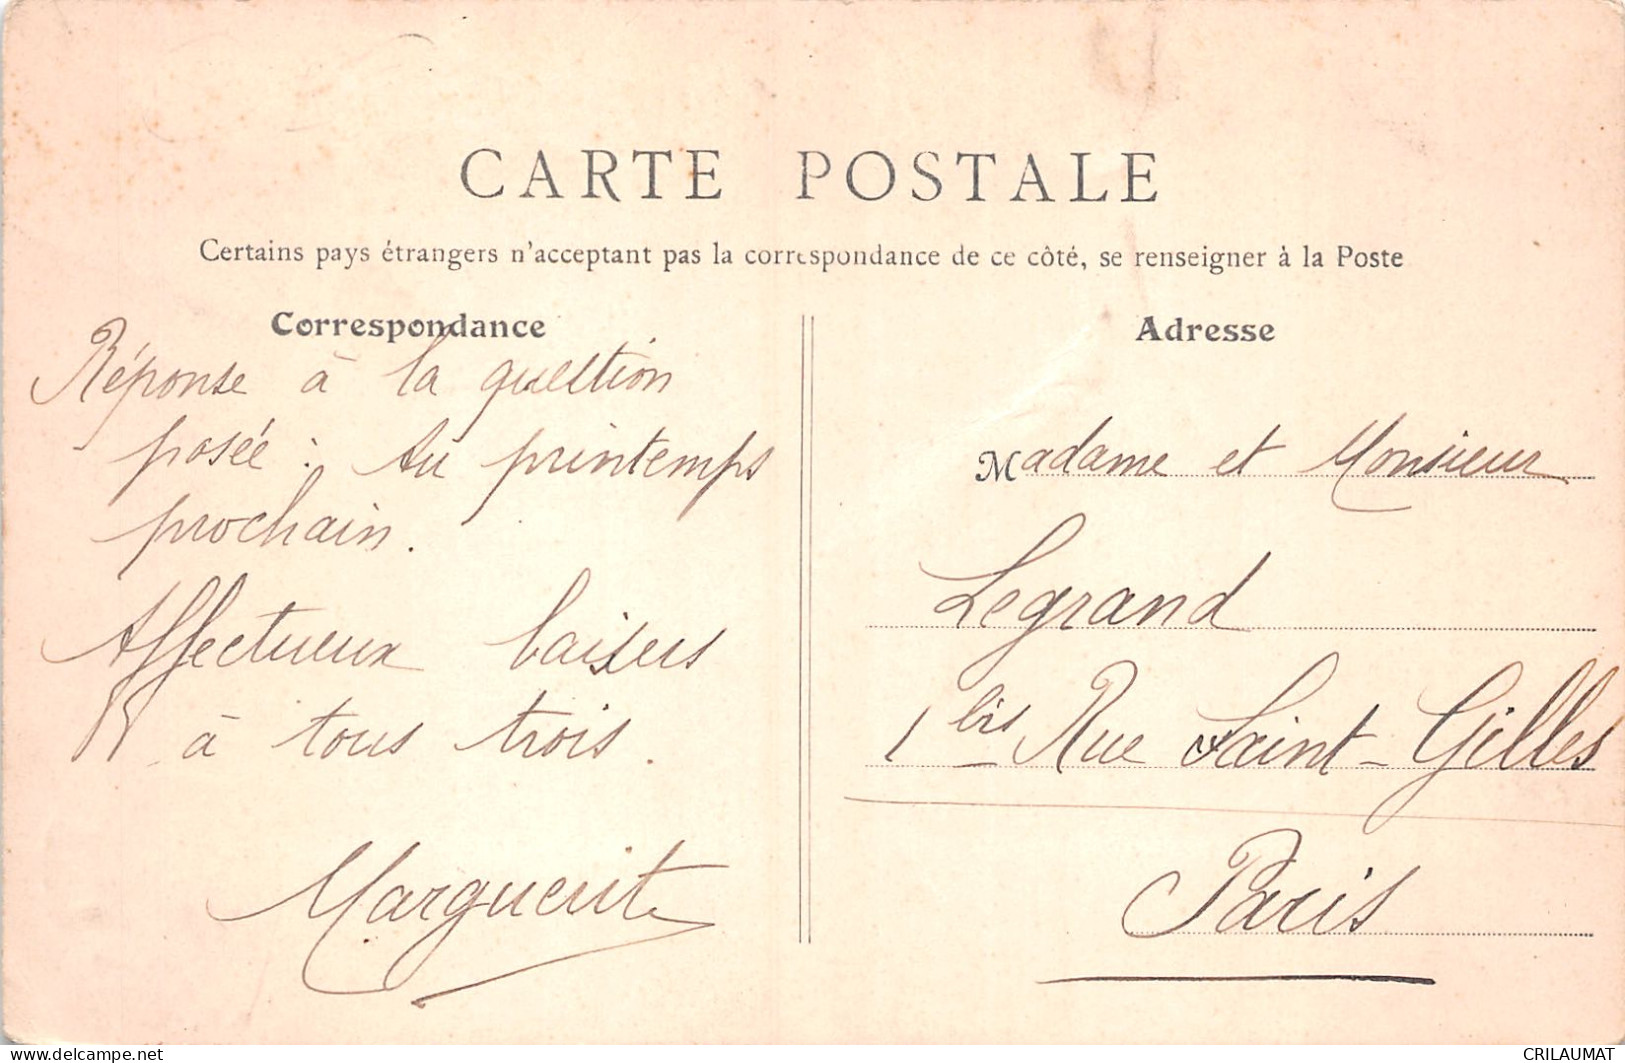 CARTE POSTALE
Certains pays étrangers n'acceptant pas la correspondance de ce côté, se renseigner à la Poste
Correspondance
Réponse à la question
posée : Au printemps
prochain.
Affectueux baisers
à tous trois.
Marguerite
Adresse
Madame et Monsieur
Legrand
1 bis Rue Saint-Gilles
Paris
www.delcampe.net
CRILAUMAT